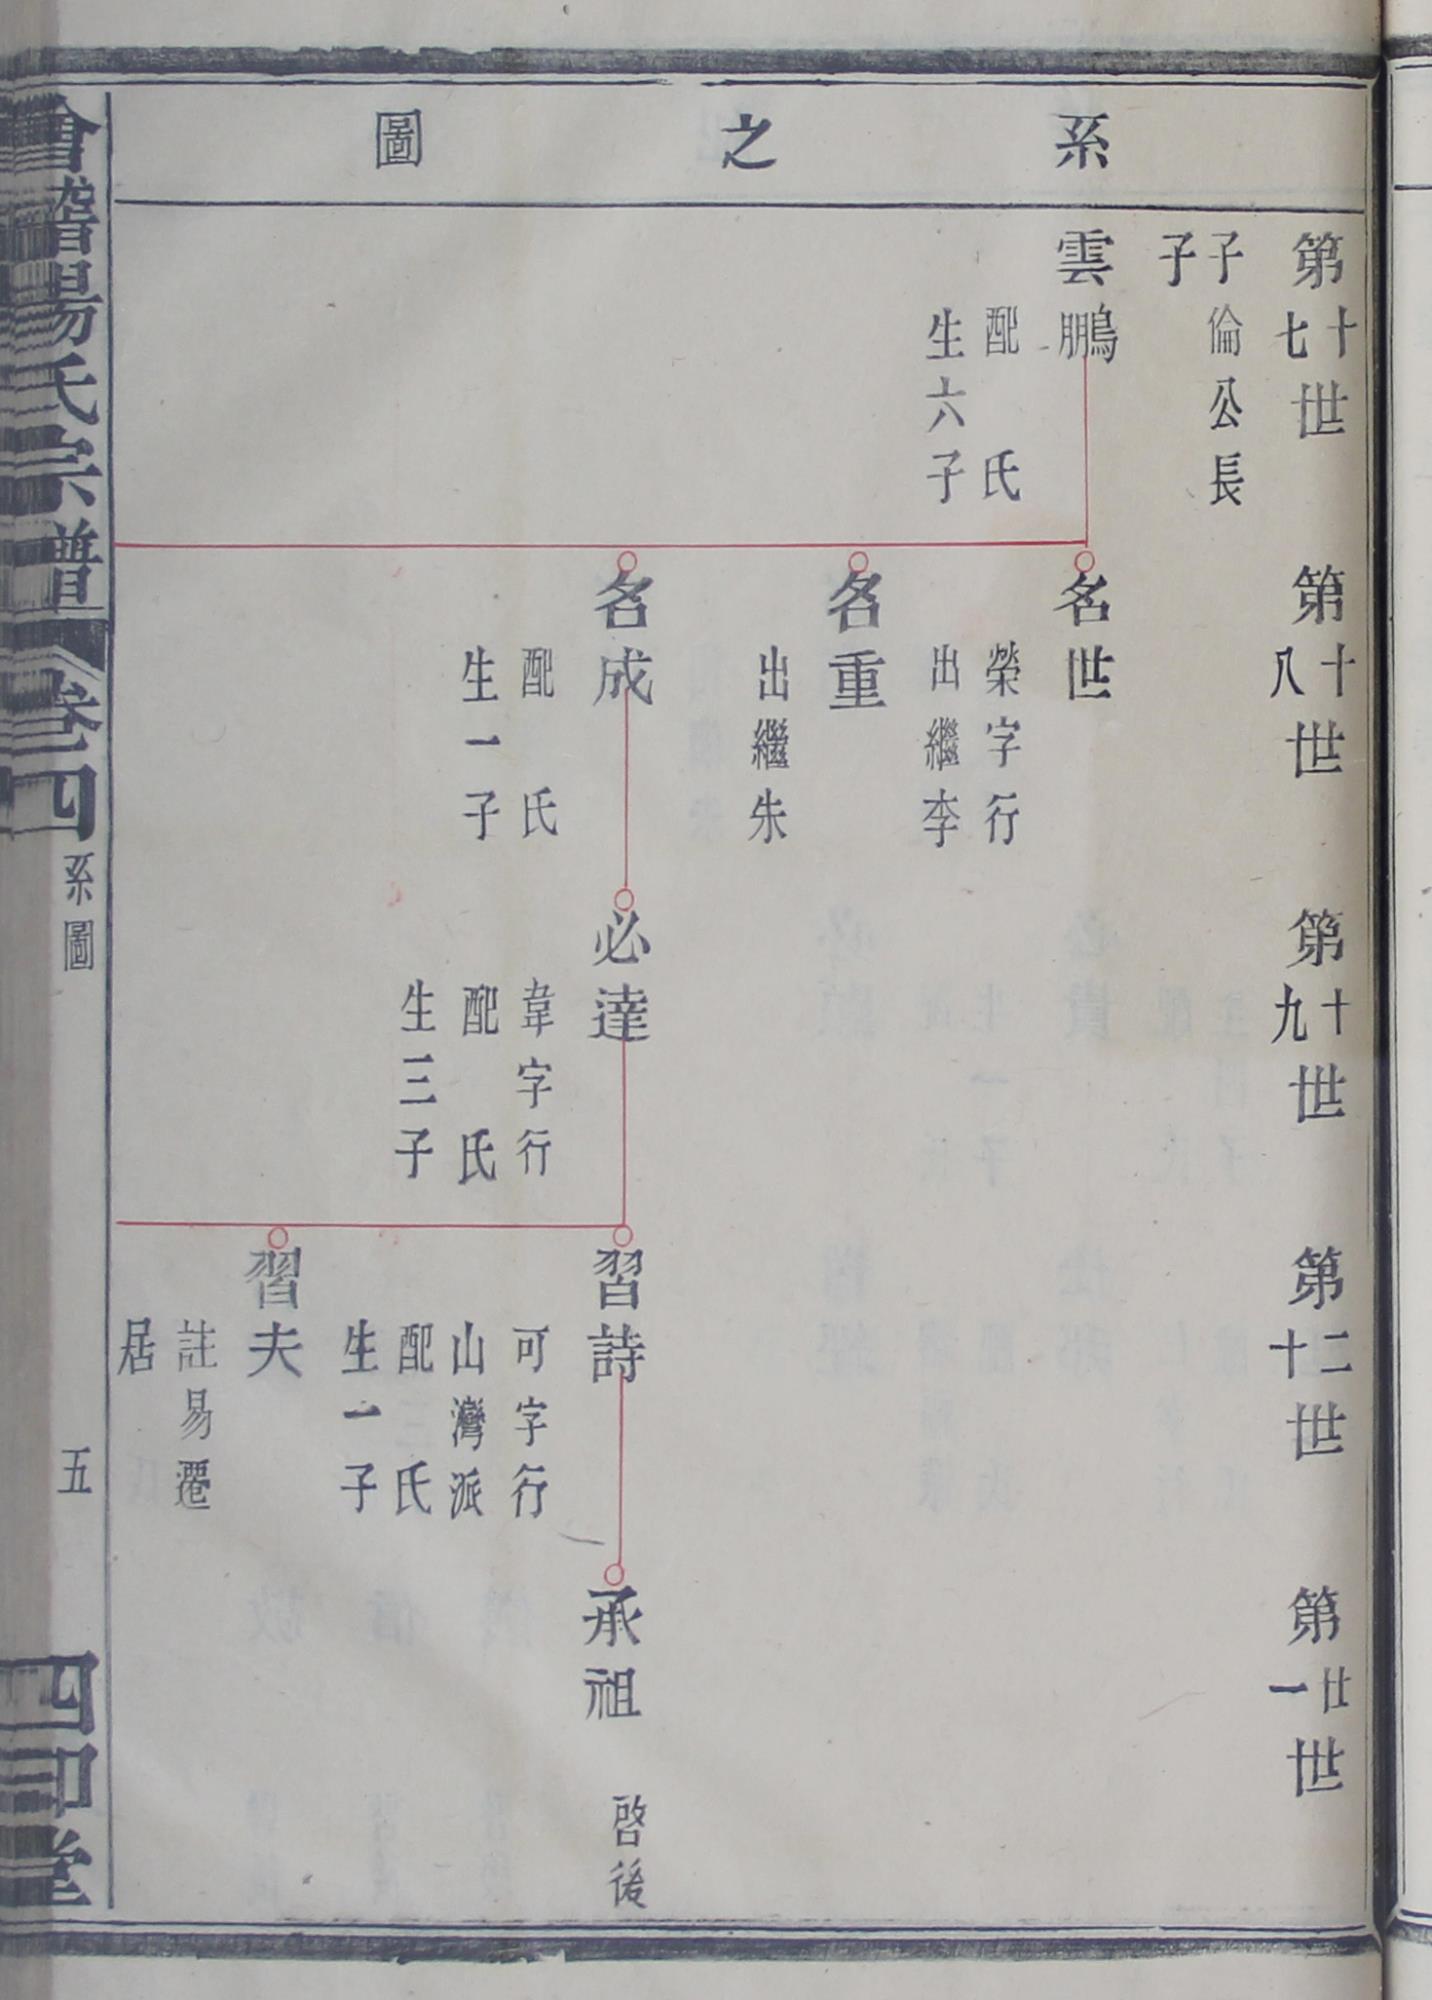 系之圖
第十七世
子倫公長
子
雲鵬
配 氏
生六子
第十八世
名世
榮字行
出繼李
名重
出繼朱
名成
配 氏
生一子
第十九世
必達
韋字行
配 氏
生三子
第二十世
習詩
可字行
山灣派
配 氏
生一子
習夫
註易遷
居
第廿一世
承祖
啓後
會稽楊氏宗譜
卷四
系圖
五
四印堂